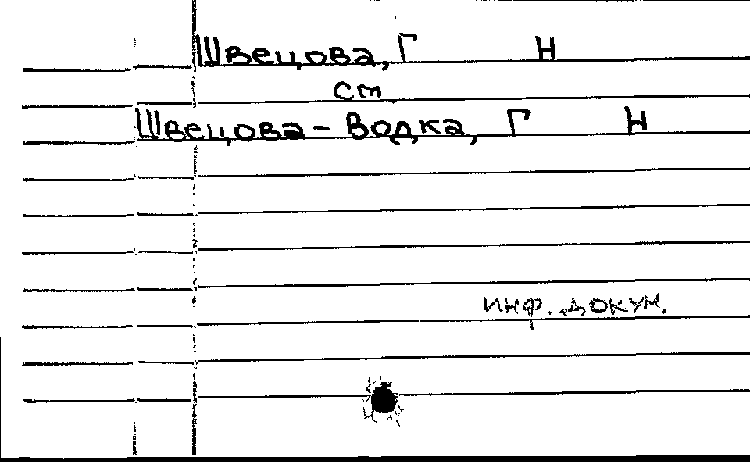 Швецова, Г Н
см
Швецова-Водка, Г Н
инф. докум.